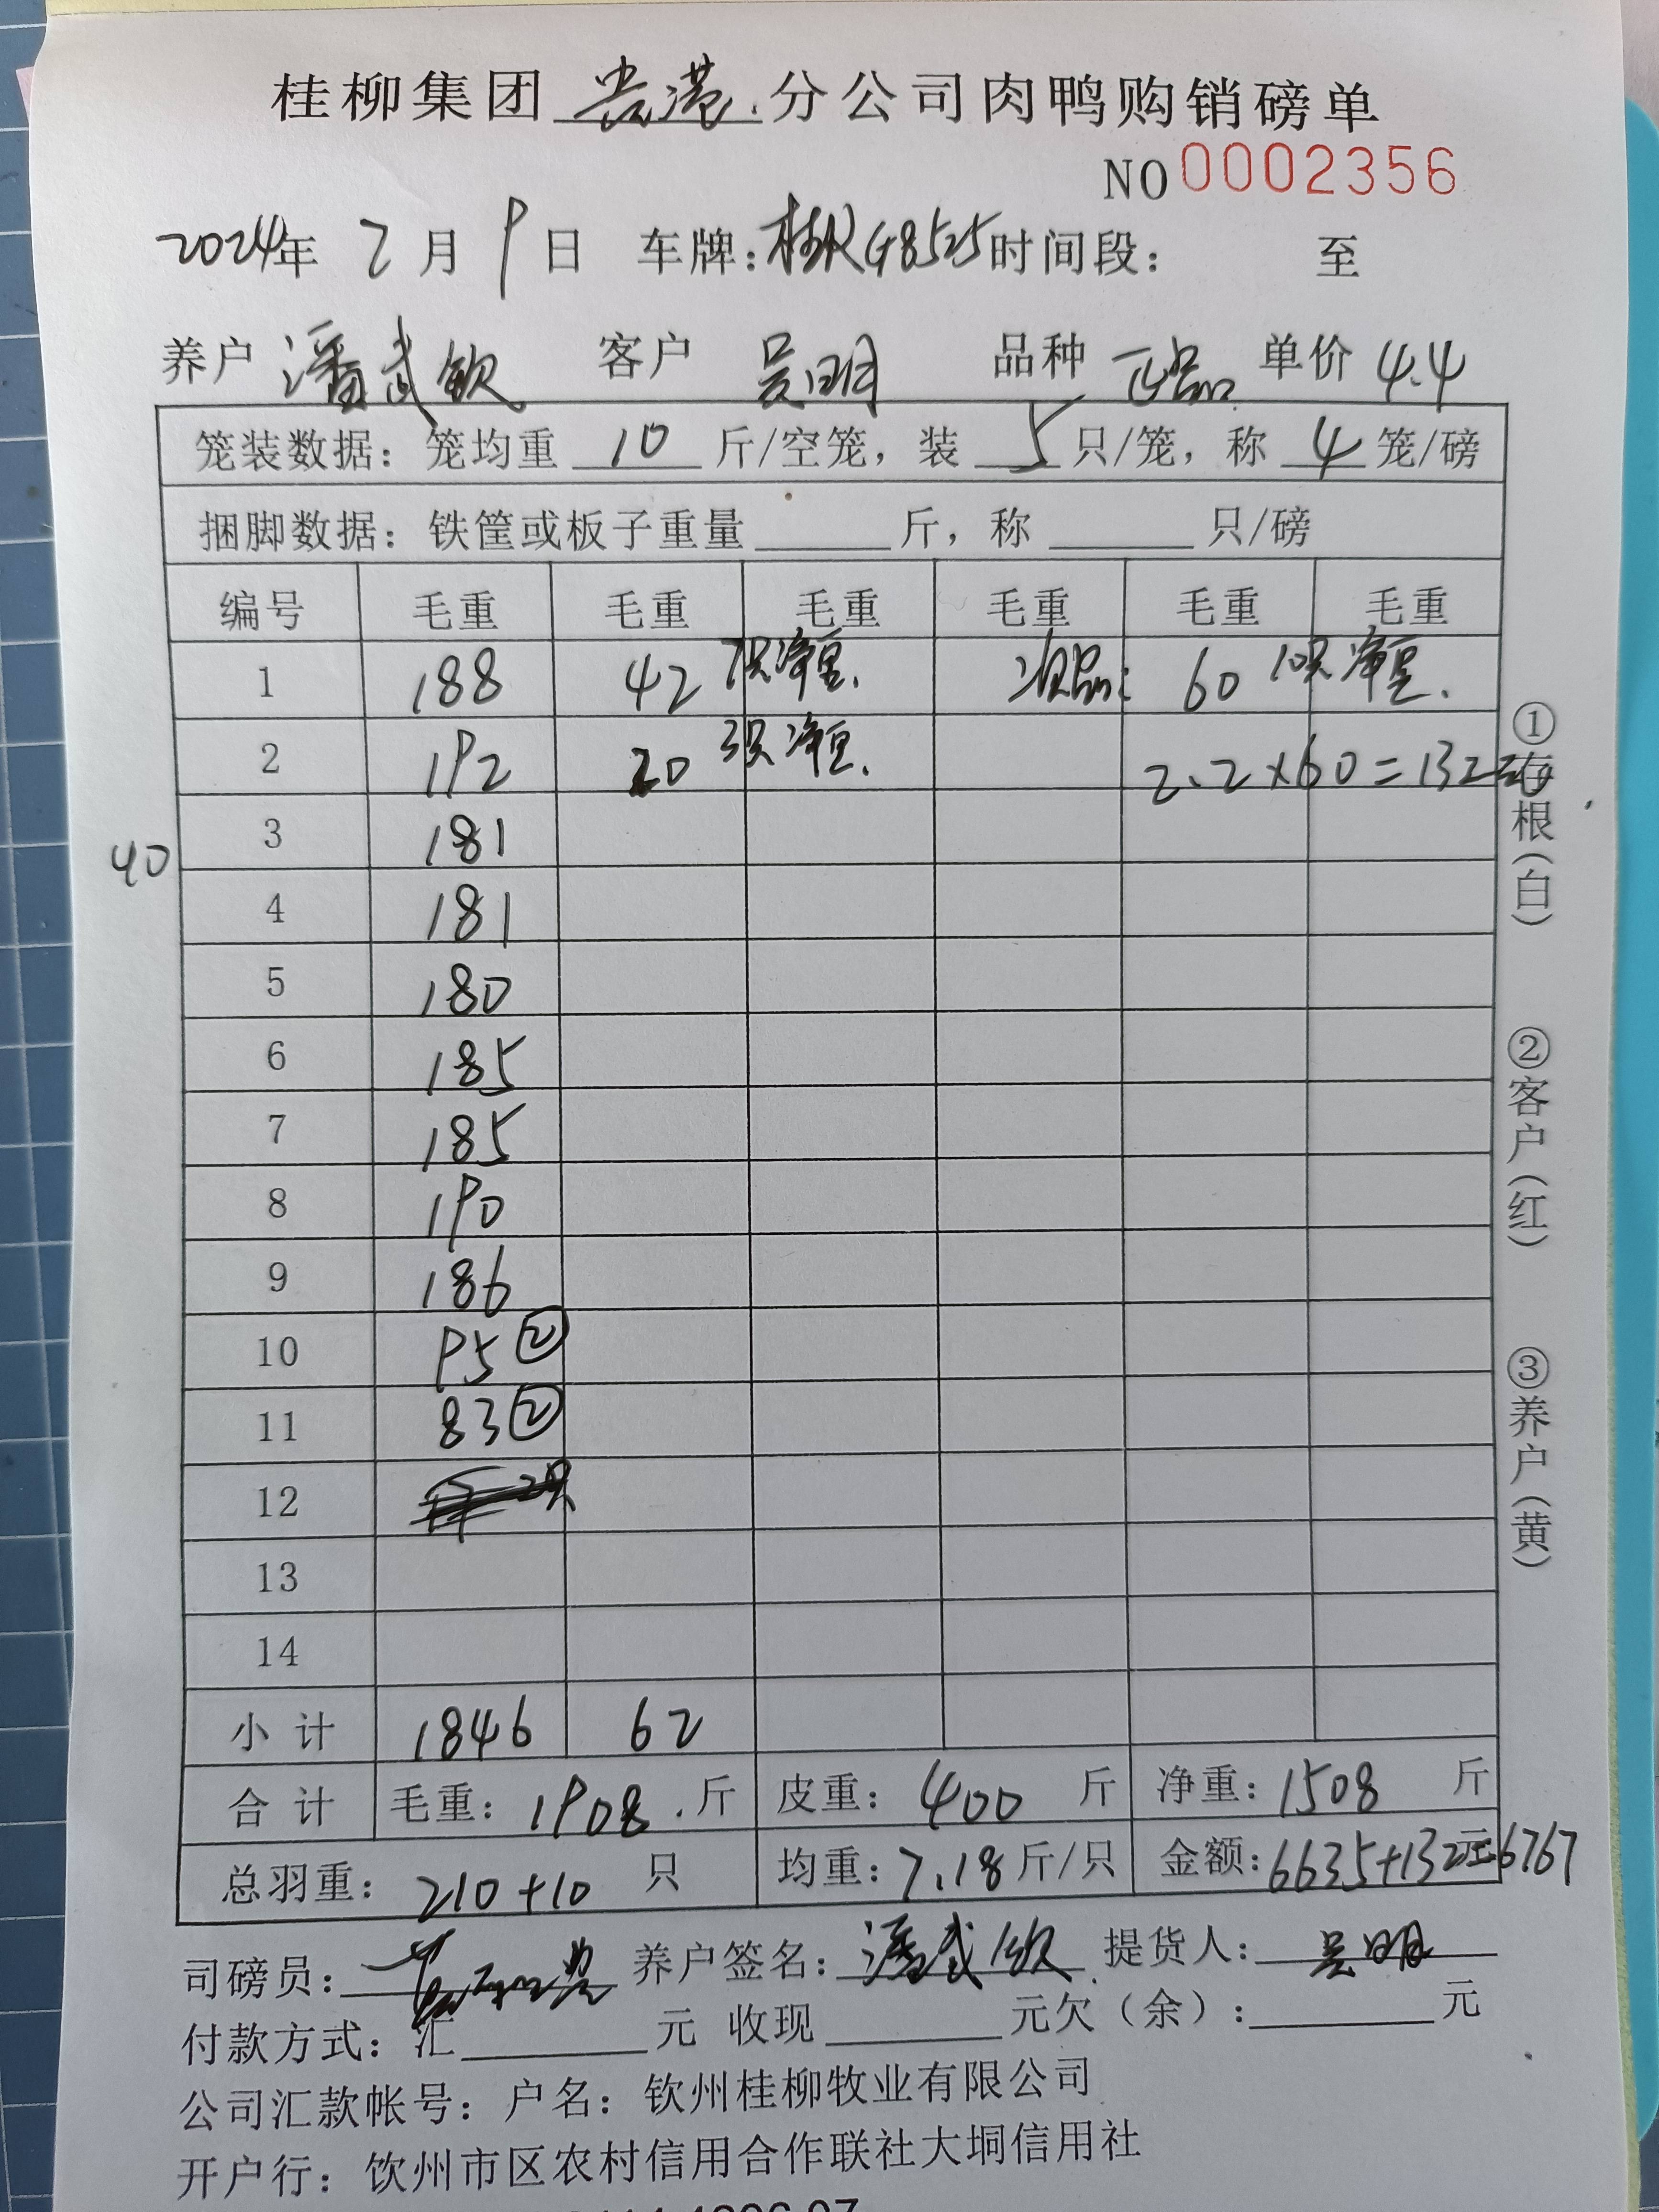 桂柳集团 贵港 分公司肉鸭购销磅单
NO 0002356
2024年 2月 9日 车牌:桂R G8525 时间段: 至
养户 潘武钦 客户 吴明 品种 正品 单价 4.4
笼装数据: 笼均重 10 斤/空笼, 装 5 只/笼, 称 4 笼/磅
捆脚数据: 铁筐或板子重量 斤, 称 只/磅
编号 毛重 毛重 毛重 毛重 毛重 毛重
1 188 42 7只净重. 次品: 60 10只净重.
2 192 20 3只净重. 2.2×60=132元
3 181
40
4 181
5 180
6 185
7 185
8 190
9 186
10 95 ②
11 83 ②
12
13
14
小 计 1846 62
合 计 毛重: 1908. 斤 皮重: 400 斤 净重: 1508 斤
总羽重: 210+10 只 均重: 7.18 斤/只 金额: 6635+132元=6767
司磅员: 养户签名: 潘武钦 提货人: 吴明
付款方式: 汇 元 收现 元欠(余): 元
公司汇款帐号: 户名: 钦州桂柳牧业有限公司
开户行: 饮州市区农村信用合作联社大垌信用社
①存根(白)
②客户(红)
③养户(黄)